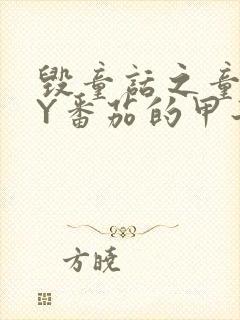 毁童话之童
Y番茄的甲
方晓